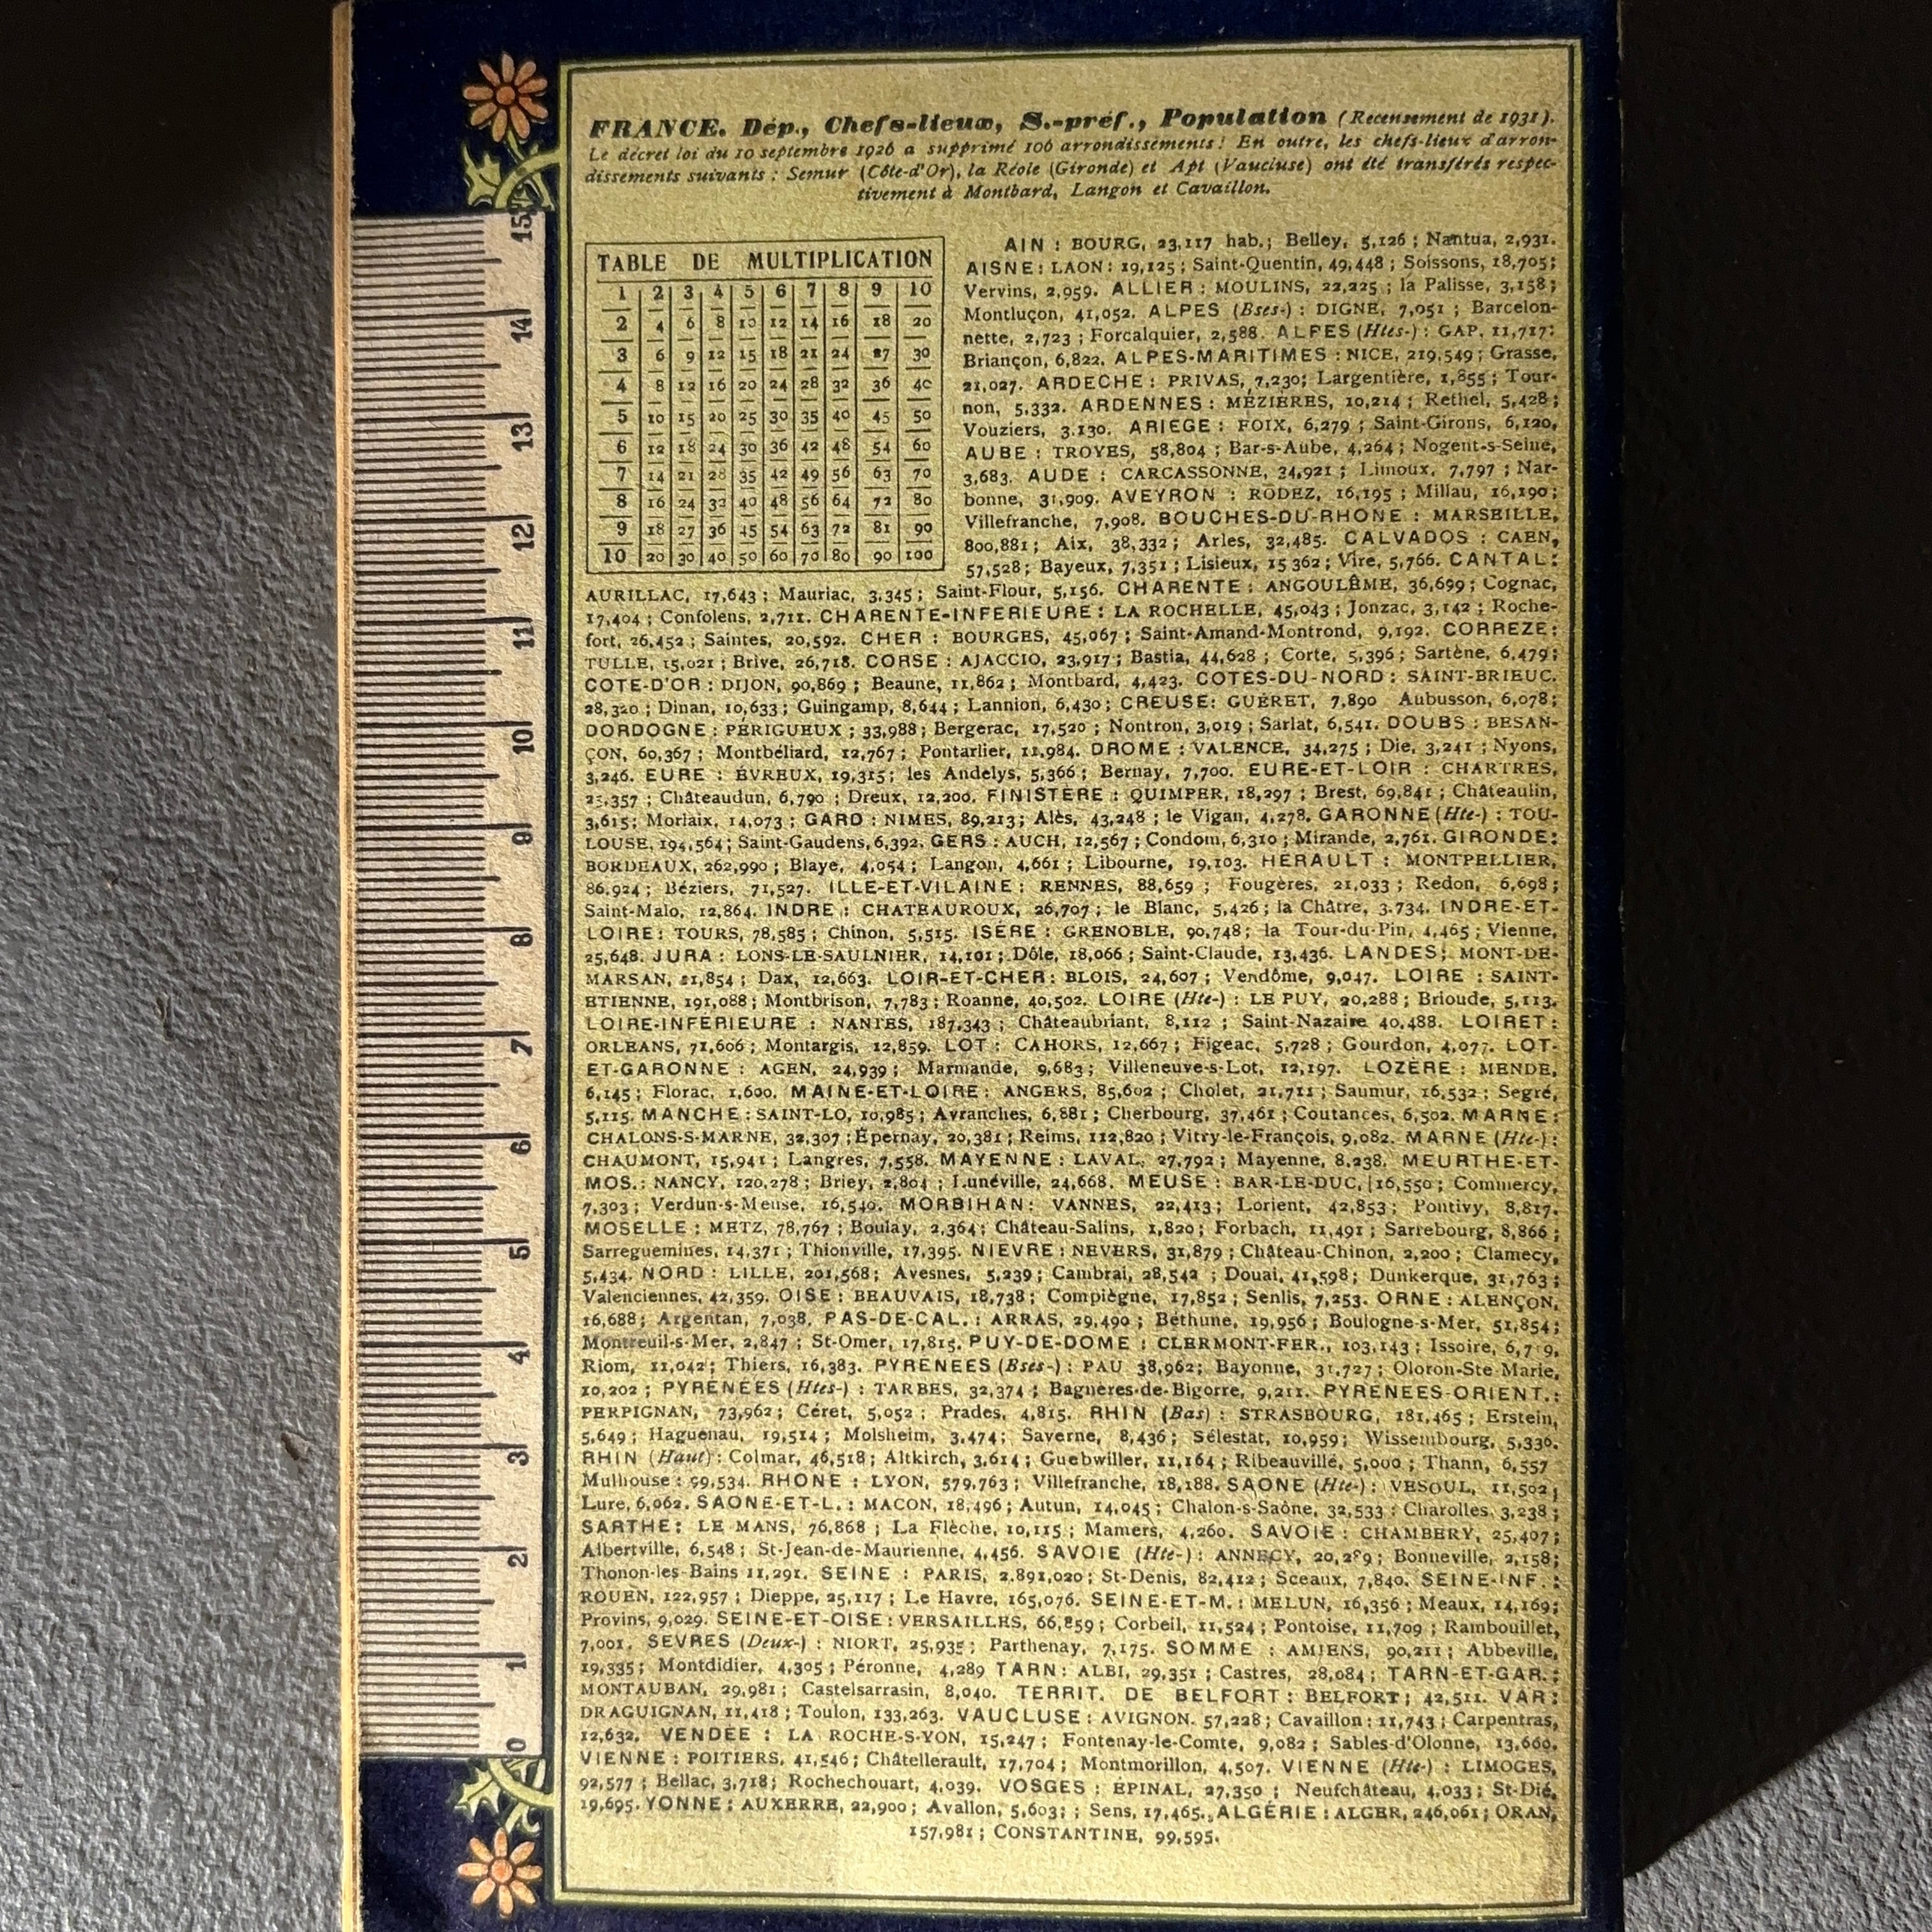 FRANCE. Dép., Chefs-lieux, S.-préf., Population (Recensement de 1931).
Le décret loi du 10 septembre 1926 a supprimé 106 arrondissements! En outre, les chefs-lieux d'arron-
dissements suivants : Semur (Côte-d'Or), la Réole (Gironde) et Apt (Vaucluse) ont été transférés respec-
tivement à Montbard, Langon et Cavaillon.
TABLE DE MULTIPLICATION
1 2 3 4 5 6 7 8 9 10
2 4 6 8 10 12 14 16 18 20
3 6 9 12 15 18 21 24 27 30
4 8 12 16 20 24 28 32 36 40
5 10 15 20 25 30 35 40 45 50
6 12 18 24 30 36 42 48 54 60
7 14 21 28 35 42 49 56 63 70
8 16 24 32 40 48 56 64 72 80
9 18 27 36 45 54 63 72 81 90
10 20 30 40 50 60 70 80 90 100
AIN : BOURG, 23,117 hab.; Belley, 5,126 ; Nantua, 2,931.
AISNE: LAON: 19,125 ; Saint-Quentin, 49,448 ; Soissons, 18,705;
Vervins, 2,959. ALLIER : MOULINS, 22,225 ; la Palisse, 3,158;
Montluçon, 41,052. ALPES (Bses-) : DIGNE, 7,051 ; Barcelon-
nette, 2,723 ; Forcalquier, 2,588. ALPES (Htes-) : GAP, 11,717:
Briançon, 6,822. ALPES-MARITIMES : NICE, 219,549 ; Grasse,
21,027. ARDECHE : PRIVAS, 7,230; Largentière, 1,855 ; Tour-
non, 5,332. ARDENNES : MÉZIÈRES, 10,214 ; Rethel, 5,428;
Vouziers, 3.130. ARIEGE : FOIX, 6,279 ; Saint-Girons, 6,120,
AUBE : TROYES, 58,804 ; Bar-s-Aube, 4,264 ; Nogent-s-Seine,
3,683. AUDE : CARCASSONNE, 34,921 ; Limoux, 7,797 ; Nar-
bonne, 31,909. AVEYRON : RODEZ, 16,195 ; Millau, 16,190;
Villefranche, 7,908. BOUCHES-DU-RHONE : MARSEILLE,
800,881 ; Aix, 38,332 ; Arles, 32,485. CALVADOS : CAEN,
57,528; Bayeux, 7,351 ; Lisieux, 15 362 ; Vire, 5,766. CANTAL:
AURILLAC, 17,643 ; Mauriac, 3,345 ; Saint-Flour, 5,156. CHARENTE : ANGOULÊME, 36,699 ; Cognac,
17,404 ; Confolens, 2,711. CHARENTE-INFERIEURE : LA ROCHELLE, 45,043 ; Jonzac, 3,142 ; Roche-
fort, 26,452 ; Saintes, 20,592. CHER : BOURGES, 45,067 ; Saint-Amand-Montrond, 9,192. CORREZE:
TULLE, 15,021 ; Brive, 26,718. CORSE : AJACCIO, 23,917 ; Bastia, 44,628 ; Corte, 5,396 ; Sartène, 6,479;
COTE-D'OR : DIJON, 90,869 ; Beaune, 11,862 ; Montbard, 4,423. COTES-DU-NORD : SAINT-BRIEUC.
28,320 ; Dinan, 10,633 ; Guingamp, 8,644 ; Lannion, 6,430 ; CREUSE: GUÉRET, 7,890 Aubusson, 6,078;
DORDOGNE : PÉRIGUEUX ; 33,988 ; Bergerac, 17,520 ; Nontron, 3,019 ; Sarlat, 6,541. DOUBS : BESAN-
ÇON, 60,367 ; Montbéliard, 12,767 ; Pontarlier, 11,984. DROME : VALENCE, 34,275 ; Die, 3,241 ; Nyons,
3,246. EURE : ÉVREUX, 19,315 ; les Andelys, 5,366 ; Bernay, 7,700. EURE-ET-LOIR : CHARTRES,
,357 ; Châteaudun, 6,790 ; Dreux, 12,200. FINISTÈRE : QUIMPER, 18,297 ; Brest, 69,841 ; Châteaulin,
3,615 ; Morlaix, 14,073 ; GARD : NIMES, 89,213 ; Alès, 43,248 ; le Vigan, 4,278. GARONNE (Hte-) : TOU-
LOUSE, 194,564 ; Saint-Gaudens, 6,392. GERS : AUCH, 12,567 ; Condom, 6,310 ; Mirande, 2,761. GIRONDE:
BORDEAUX, 262,990 ; Blaye, 4,054 ; Langon, 4,661 ; Libourne, 19,103. HERAULT : MONTPELLIER,
86,924 ; Béziers, 71,527. ILLE-ET-VILAINE : RENNES, 88,659 ; Fougères, 21,033 ; Redon, 6,698 ;
Saint-Malo, 12,864. INDRE : CHATEAUROUX, 26,707 ; le Blanc, 5,426 ; la Châtre, 3.734. INDRE-ET-
LOIRE : TOURS, 78,585 ; Chinon, 5,515. ISÈRE : GRENOBLE, 90,748 ; la Tour-du-Pin, 4,465 ; Vienne,
25,648. JURA : LONS-LE-SAULNIER, 14,101 ; Dôle, 18,066 ; Saint-Claude, 13,436. LANDES: MONT-DE-
MARSAN, 11,854 ; Dax, 12,663. LOIR-ET-CHER : BLOIS, 24,607 ; Vendôme, 9,047. LOIRE : SAINT-
ETIENNE, 191,088 ; Montbrison, 7,783 ; Roanne, 40,502. LOIRE (Hte-) : LE PUY, 20,288 ; Brioude, 5,113.
LOIRE-INFÉRIEURE : NANTES, 187,343 ; Châteaubriant, 8,112 ; Saint-Nazaire 40,488. LOIRET :
ORLEANS, 71,606 ; Montargis, 12,859. LOT : CAHORS, 12,667 ; Figeac, 5,728 ; Gourdon, 4,077. LOT-
ET-GARONNE : AGEN, 24,939 ; Marmande, 9,683 ; Villeneuve-s-Lot, 12,197. LOZÈRE : MENDE,
6,145 ; Florac, 1,600. MAINE-ET-LOIRE : ANGERS, 85,602 ; Cholet, 21,711 ; Saumur, 16,532 ; Segré,
5,115. MANCHE : SAINT-LO, 10,985 ; Avranches, 6,881 ; Cherbourg, 37,461 ; Coutances, 6,502. MARNE :
CHALONS-S-MARNE, 32,307 ; Épernay, 20,381 ; Reims, 112,820 ; Vitry-le-François, 9,082. MARNE (Hte-) :
CHAUMONT, 15,941 ; Langres, 7,558. MAYENNE : LAVAL, 27,792 ; Mayenne, 8,238. MEURTHE-ET-
MOS. : NANCY, 120,278 ; Briey, 2,804 ; Lunéville, 24,668. MEUSE : BAR-LE-DUC, 16,550 ; Commercy,
7,303 ; Verdun-s-Meuse, 16,540. MORBIHAN : VANNES, 22,413 ; Lorient, 42,853 ; Pontivy, 8,817.
MOSELLE : METZ, 78,767 ; Boulay, 2,364 ; Château-Salins, 1,820 ; Forbach, 11,491 ; Sarrebourg, 8,866 ;
Sarreguemines, 14,371 ; Thionville, 17,395. NIEVRE : NEVERS, 31,879 ; Château-Chinon, 2,200 ; Clamecy,
5,434. NORD : LILLE, 201,568 ; Avesnes, 5,239 ; Cambrai, 28,542 ; Douai, 41,598 ; Dunkerque, 31,763 ;
Valenciennes, 42,359. OISE : BEAUVAIS, 18,738 ; Compiègne, 17,852 ; Senlis, 7,253. ORNE : ALENÇON,
16,688 ; Argentan, 7,038. PAS-DE-CAL. : ARRAS, 29,490 ; Béthune, 19,956 ; Boulogne-s-Mer, 51,854 ;
Montreuil-s-Mer, 2,847 ; St-Omer, 17,815. PUY-DE-DOME : CLERMONT-FER., 103,143 ; Issoire,
Riom, 11,042 ; Thiers, 16,383. PYRENEES (Bses-) : PAU 38,962 ; Bayonne, 31,727 ; Oloron-Ste-Marie,
10,202 ; PYRÉNÉES (Htes-) : TARBES, 32,374 ; Bagnères-de-Bigorre, 9,211. PYRENEES-ORIENT. :
PERPIGNAN, 73,962 ; Céret, 5,052 ; Prades, 4,815. RHIN (Bas) : STRASBOURG, 181,465 ; Erstein,
5,649 ; Haguenau, 19,514 ; Molsheim, 3,474 ; Saverne, 8,436 ; Sélestat, 10,959 ; Wissembourg, 5,336.
RHIN (Haut) : Colmar, 46,518 ; Altkirch, 3,614 ; Guebwiller, 11,164 ; Ribeauvillé, 5,000 ; Thann, 6,557
Mulhouse : 99,534. RHONE : LYON, 579,763 ; Villefranche, 18,188. SAONE (Hte-) : VESOUL, 11,502 ;
Lure, 6,062. SAONE-ET-L. : MACON, 18,496 ; Autun, 14,045 ; Chalon-s-Saône, 32,533 : Charolles, 3,238 ;
SARTHE : LE MANS, 76,868 ; La Flèche, 10,115 ; Mamers, 4,260. SAVOIE : CHAMBERY, 25,407 ;
Albertville, 6,548 ; St-Jean-de-Maurienne, 4,456. SAVOIE (Hte-) : ANNECY, ; Bonneville, 2,158;
Thonon-les-Bains 11,291. SEINE : PARIS, 2.891,020 ; St-Denis, 82,412 ; Sceaux, 7,840. SEINE-INF. :
ROUEN, 122,957 ; Dieppe, 25,117 ; Le Havre, 165,076. SEINE-ET-M. : MELUN, 16,356 ; Meaux, 14,169;
Provins, 9,029. SEINE-ET-OISE : VERSAILLES, 66,859 ; Corbeil, 11,524 ; Pontoise, 11,709 ; Rambouillet,
7,001. SEVRES (Deux-) : NIORT, 25,935 ; Parthenay, 7,175. SOMME : AMIENS, 90,211 ; Abbeville,
19,335 ; Montdidier, 4,305 ; Péronne, 4,289 TARN : ALBI, 29,351 ; Castres, 28,084 ; TARN-ET-GAR. :
MONTAUBAN, 29,981 ; Castelsarrasin, 8,040. TERRIT. DE BELFORT : BELFORT ; 42,511. VAR :
DRAGUIGNAN, 11,418 ; Toulon, 133,263. VAUCLUSE : AVIGNON. 57,228 ; Cavaillon : 11,743 ; Carpentras,
12,632. VENDÉE : LA ROCHE-S-YON, 15,247 ; Fontenay-le-Comte, 9,082 ; Sables-d'Olonne, 13,660.
VIENNE : POITIERS, 41,546 ; Châtellerault, 17,704 ; Montmorillon, 4,507. VIENNE (Hte-) : LIMOGES,
92,577 ; Bellac, 3,718 ; Rochechouart, 4,039. VOSGES : ÉPINAL, 27,350 ; Neufchâteau, 4,033 ; St-Dié,
19,695. YONNE : AUXERRE, 22,900 ; Avallon, 5,603 ; ; Sens, 17,465. ALGÉRIE : ALGER, 246,061 ; ORAN,
157,981 ; CONSTANTINE, 99,595.
15
14
13
12
11
10
9
8
7
6
5
4
3
2
1
0